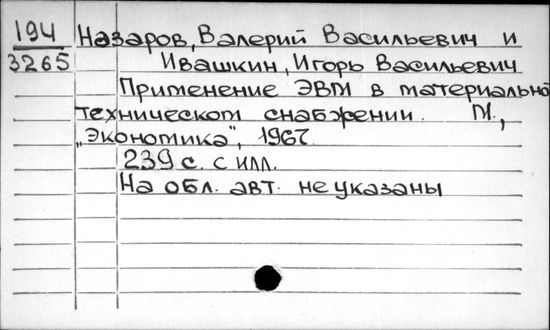 194 Назаров, Валерий Васильевич и
3265 Ивашкин, Игорь Васильевич
Применение ЭВМ в материально
техническом снабжении. М.,
„Экономика", 1967.
239 с. с илл.
На обл. авт. не указаны